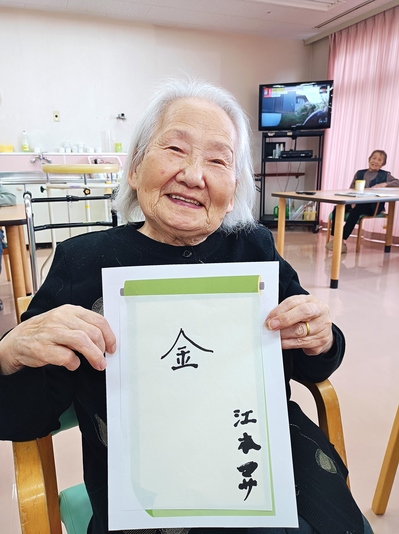 金
江本マサ